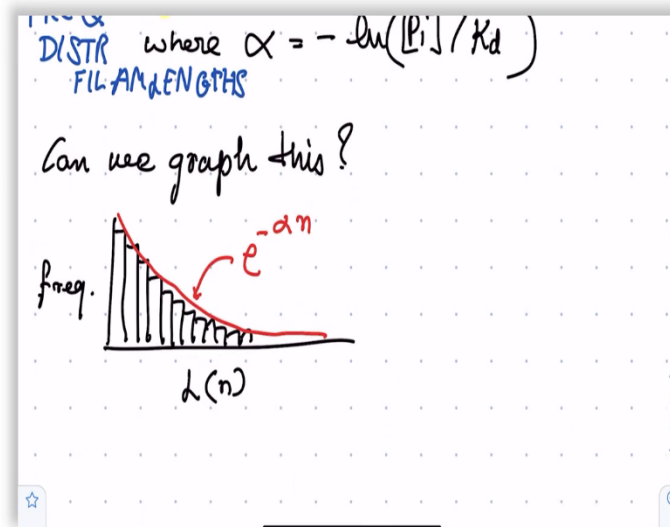 DISTR where α = - ln([Pi] / Kd)
FILAM LENGTHS
Can we graph this?
e^-αn
freq.
L(n)